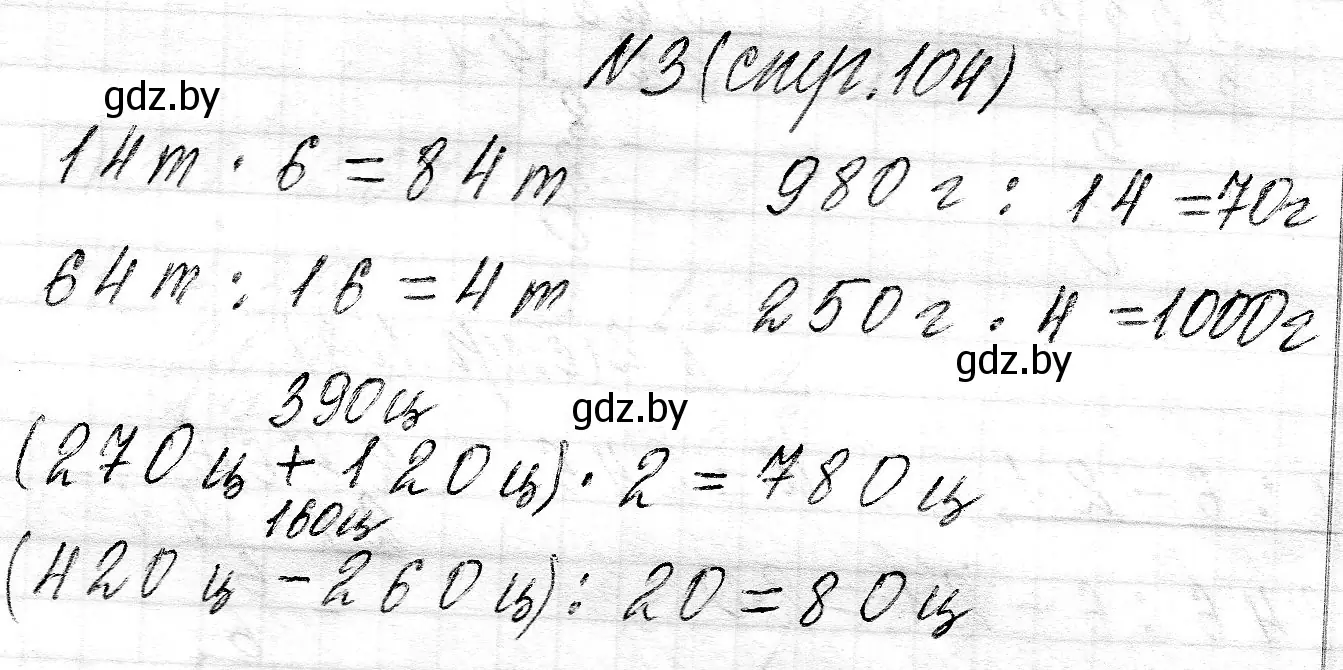 N 3 (стр. 104)
gdz.by
14 т · 6 = 84 т
980 г : 14 = 70 г
64 т : 16 = 4 т
250 г · 4 = 1000 г
gdz.by
390 ц
gdz.by
(270 ц + 120 ц) · 2 = 780 ц
160 ц
(420 ц - 260 ц) : 20 = 80 ц